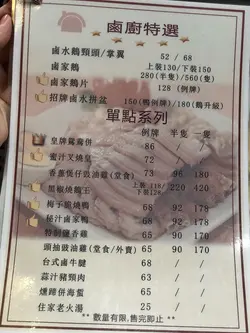 鹵廚特選
鹵水鵝頸頭/掌翼 52 / 68
鹵家鵝 上裝130/下裝150
280(半隻)/560(隻)
鹵家鵝片 128 (例牌)
招牌鹵水拼盆 150(鴨例牌)/180(鵝升級)
單點系列
例牌 半隻 一隻
皇牌鴛鴦併 86 / /
蜜汁叉燒皇 / /
香蔥焗仔豉油雞(堂食) 73 96 180
黑椒燒鵝王 上裝118/下裝128 220 420
梅子脆燒鴨 68 92 178
秘汁鹵家鴨 68 92 178
特制鹽香雞 65 90 170
頭抽豉油雞(堂食/外賣) 65 90 170
台式鹵牛腱 68 / /
蒜汁豬頸肉 63 / /
燻蹄併海蜇 65 / /
住家老火湯 25 / /
** 數量有限,售完即止 **